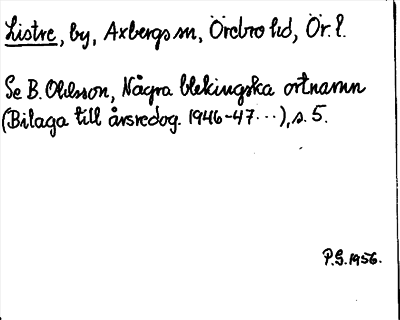 Listre, by, Axbergs sn, Örebro hd, Ör. l.
Se B. Ohlsson, Några blekingska ortnamn
(Bilaga till årsredog. 1946-47...), s. 5.
P.G. 1956.